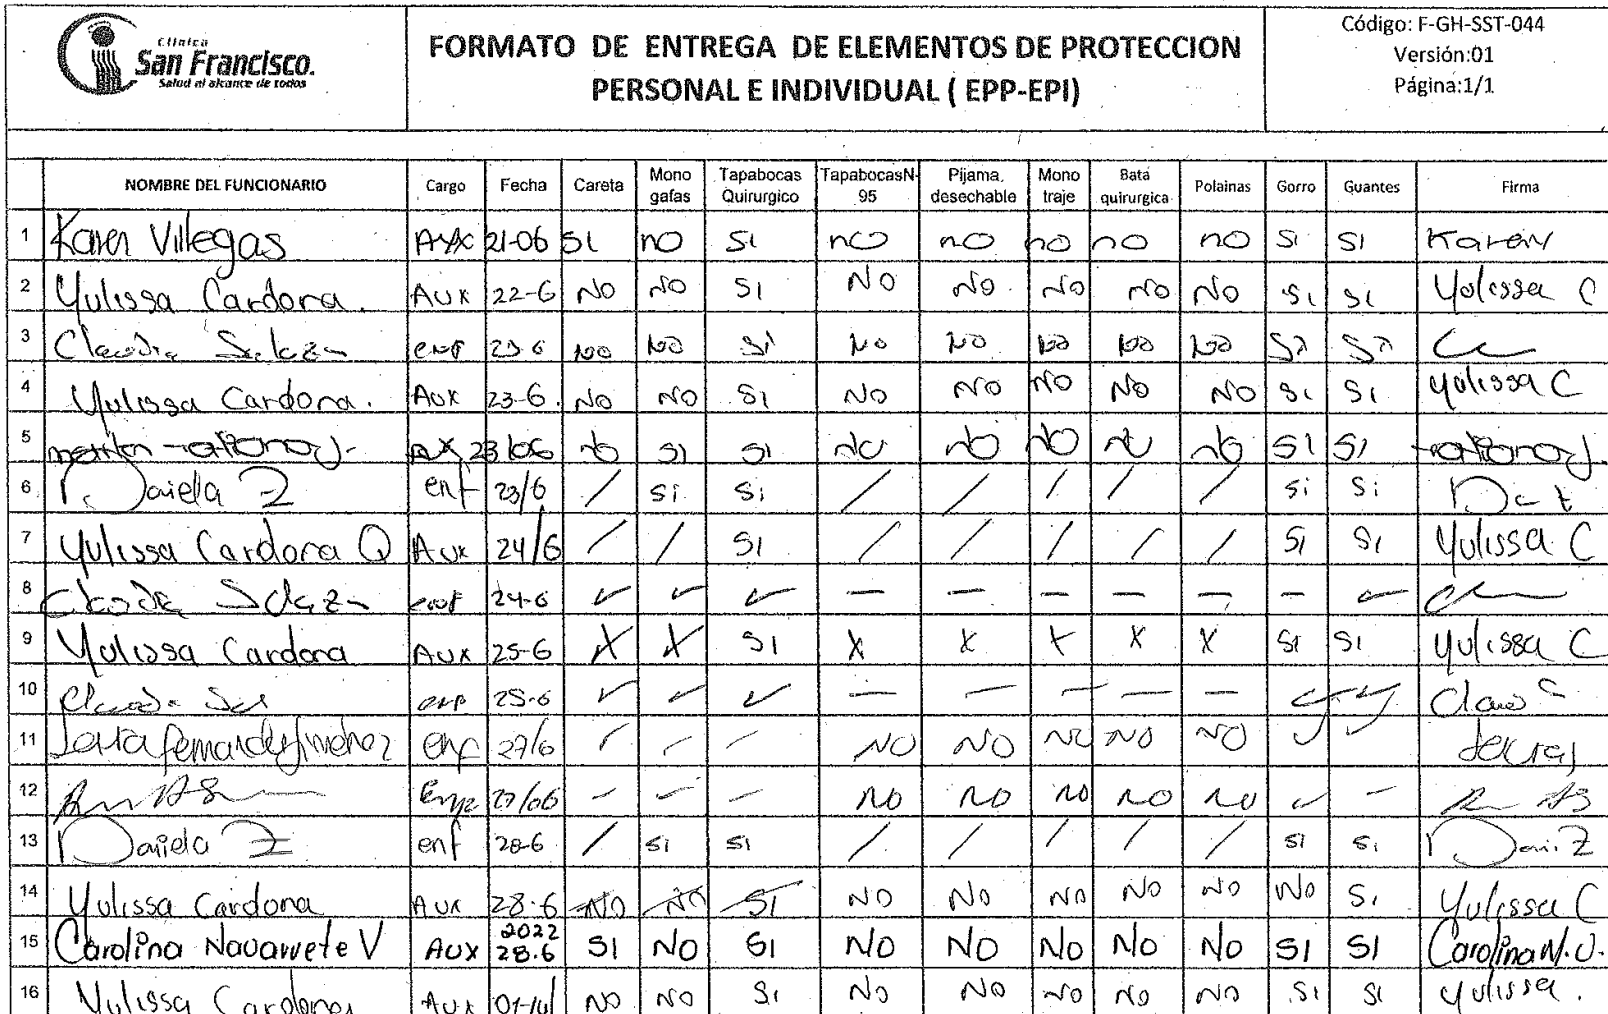 Clínica
San Francisco.
Salud al alcance de todos
FORMATO DE ENTREGA DE ELEMENTOS DE PROTECCION
PERSONAL E INDIVIDUAL ( EPP-EPI)
Código: F-GH-SST-044
Versión:01
Página:1/1
NOMBRE DEL FUNCIONARIO Cargo Fecha Careta Mono gafas Tapabocas Quirurgico TapabocasN-95 Pijama desechable Mono traje Bata quirurgica Polainas Gorro Guantes Firma
1 Karen Villegas Aux 21-06 SI no SI no no no no no SI SI Karen
2 Yulissa Cardona. Aux 22-6 NO NO SI NO NO NO NO NO SI SI Yulissa C
3 Claudia enf 23-6 NO NO SI NO NO NO NO NO SI SI
4 Yulissa Cardona. Aux 23-6. NO NO SI NO NO NO NO NO SI SI Yulissa C
5 AX 23/06 NO SI SI NO NO NO NO NO SI SI
6 Daniela Z enf 23/6 / Si Si / / / / / Si Si
7 Yulissa Cardona Q Aux 24/6 / / SI / / / / / SI SI Yulissa C
8 enf 24-6 ✓ ✓ ✓ — — — — — — ✓
9 Yulissa Cardona Aux 25-6 X X SI X X X X X SI SI Yulissa C
10 Claudia enf 25-6 ✓ ✓ ✓ — — — — — ✓ ✓
11 enf 27/6 NO NO NO NO NO ✓ ✓
12 27/06 NO NO NO NO NO ✓
13 Daniela Z enf 28-6 / SI SI / / / / / SI SI Dani Z
14 Yulissa Cardona Aux 28-6 NO NO SI NO NO NO NO NO NO SI Yulissa C
15 Carolina Navarrete V Aux 2022 28.6 SI NO SI NO NO NO NO NO SI SI Carolina N.V.
16 Yulissa Cardona Aux NO NO SI NO NO NO NO NO SI SI Yulissa.